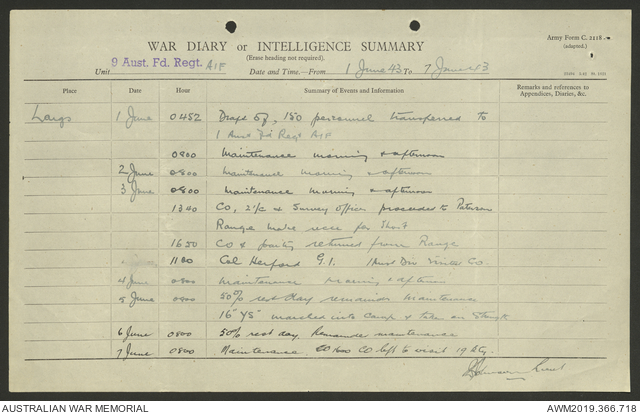 Army Form C. 2118.
(adapted.)
WAR DIARY or INTELLIGENCE SUMMARY
(Erase heading not required).
Unit 9 Aust. Fd. Regt. AIF Date and Time.—From 1 June 43 To 7 June 43
Place Date Hour Summary of Events and Information Remarks and references to Appendices, Diaries, &c.
Largs 1 June 0452 Draft of, 150 personnel transferred to
1 Aust Fd Regt AIF
0800 Maintenance morning & afternoon
2 June 0800 Maintenance morning & afternoon
3 June 0800 Maintenance morning & afternoon
1340 CO, 2i/c & Survey officer proceeded to Paterson
Range make recce for Shoot
1650 CO & party returned from Range
1100 Col Herford G.1. 1 Aust Div CO.
4 June 0800 Maintenance morning & afternoon
5 June 0800 50% rest day remainder maintenance
16 "X5" marched into Camp & on Strength
6 June 0800 50% rest day. Remainder maintenance
7 June 0800 Maintenance CO left to visit 19 Bty.
Lieut
AUSTRALIAN WAR MEMORIAL
AWM2019.366.718